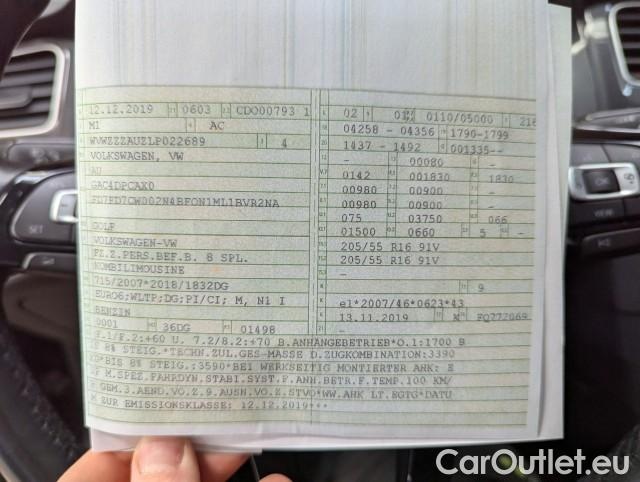 12.12.2019 0603 CDO00793 1
M1 AC
WVWZZZAUZLP022689 4
VOLKSWAGEN, VW
AU
GAC4DPCAX0
FD7FD7CW002N4BFON1ML1BVR2NA
GOLF
VOLKSWAGEN-VW
FZ.Z.PERS.BEF.B. 8 SPL.
KOMBILIMOUSINE
715/2007*2018/1832DG
EURO6;WLTP;DG;PI/CI; M, N1 I
BENZIN
0001 36DG 01498
02 0110/05000
04258 - 04356 1790-1799
1437 - 1492 001335--
- 00080 -
0142 001830 1830
00980 00900 -
00980 00900 -
075 03750 066
01500 0660 5 -
205/55 R16 91V
205/55 R16 91V
-
- 9
e1*2007/46*0623*43
13.11.2019 K FQ772069
F.1/F.2:+60 U. 7.2/8.2:+70 B.ANHANGEBETRIEB*O.1:1700 B
8% STEIG.*TECHN.ZUL.GES-MASSE D.ZUGKOMBINATION:3390
BIS 8% STEIG.:3590*BEI WERKSEITIG MONTIERTER AHK: E
M.SPEZ.FAHRDYN.STABI.SYST.F.ANH.BETR.F.TEMP.100 KM/
GEM.3.AEND.VO.Z.9.AUSN.VO.Z.STVO*WW.AHK LT.EGTG*DATU
M ZUR EMISSIONSKLASSE: 12.12.2019***
SET
OK
VIEW
CarOutlet.eu